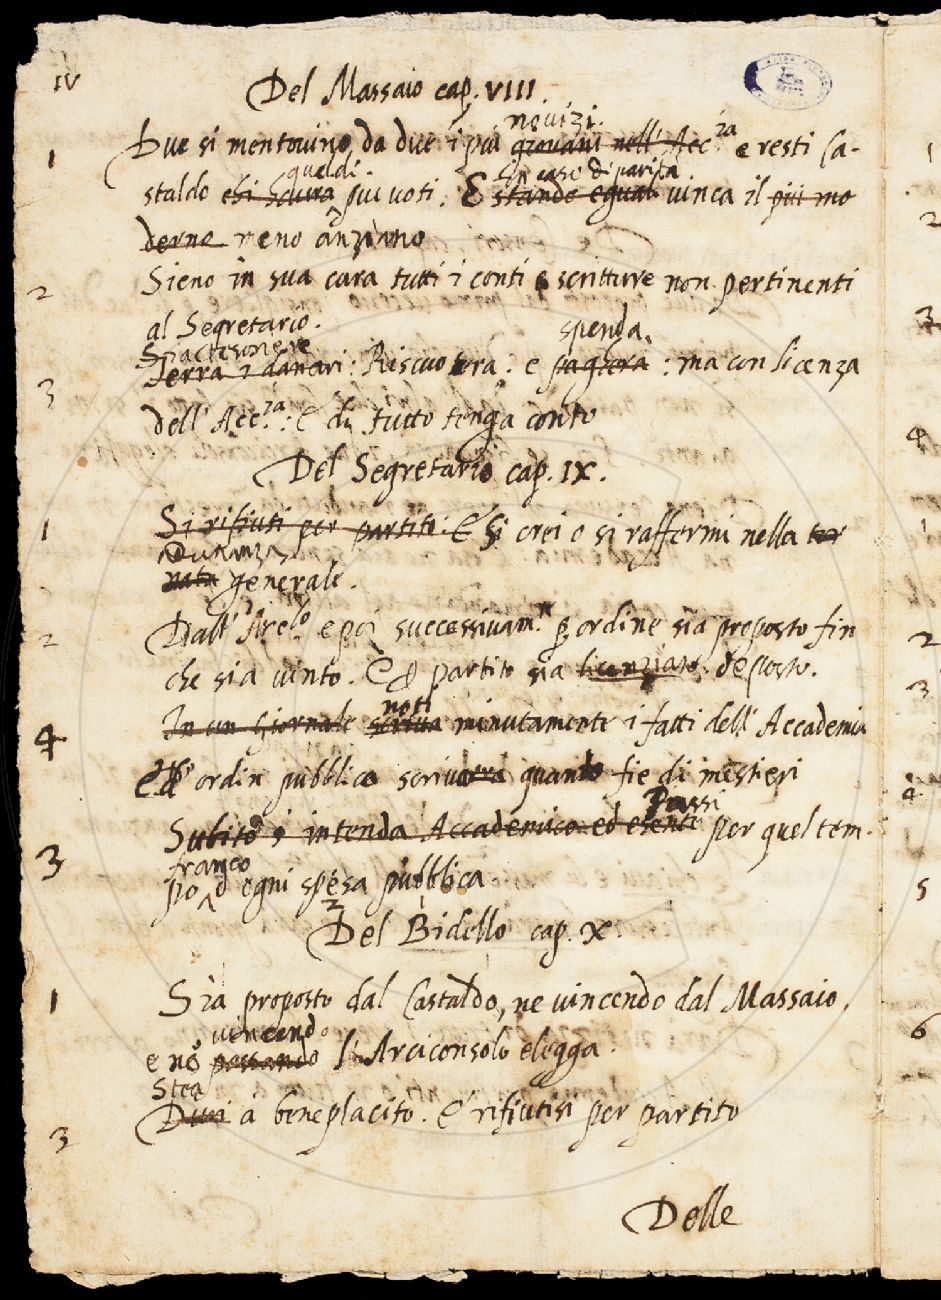 IV
Del Massaio cap. VIII
novizi.
1 Due si mentovino da due i più giovani nell' Acc.za e resti Ca-
quel di. In caso di parità.
staldo chi haura piu voti. E stando egual vinca il più mo
derno meno anziano
2 Sieno in sua cura tutti i conti e scritture non pertinenti
al Segretario. spenda.
3 Terrà i danari: Riscuoterà: e pagherà: ma con licenza
dell' Acc.za: E di tutto tenga conto
Del Segretario cap. IX.
1 Si rifiuti per partito. E Si crei o si raffermi nella tor
Dunanza
nata generale.
2 Dall' Arclo e poi successivam.te per ordine sia proposto fin
che sia vinto. E partito sia licenziato. deposto.
noti
4 In un Giornale scriva minutamente i fatti dell' Accademia
ordin pubblico scriverà quanto fie di mestieri
Passi
3 Subito s'intenda Accademico ed esente per quel tem-
franco
po d' ogni spesa pubblica
2 1
Del Bidello cap. X.
1 Sia proposto dal Castaldo, ne vincendo dal Massaio,
vincendo
e nō passando l' Arciconsolo elegga.
Stea
3 Duri à beneplacito. E rifiutisi per partito
Delle
1
2
3
4
1
2
3
4
5
6